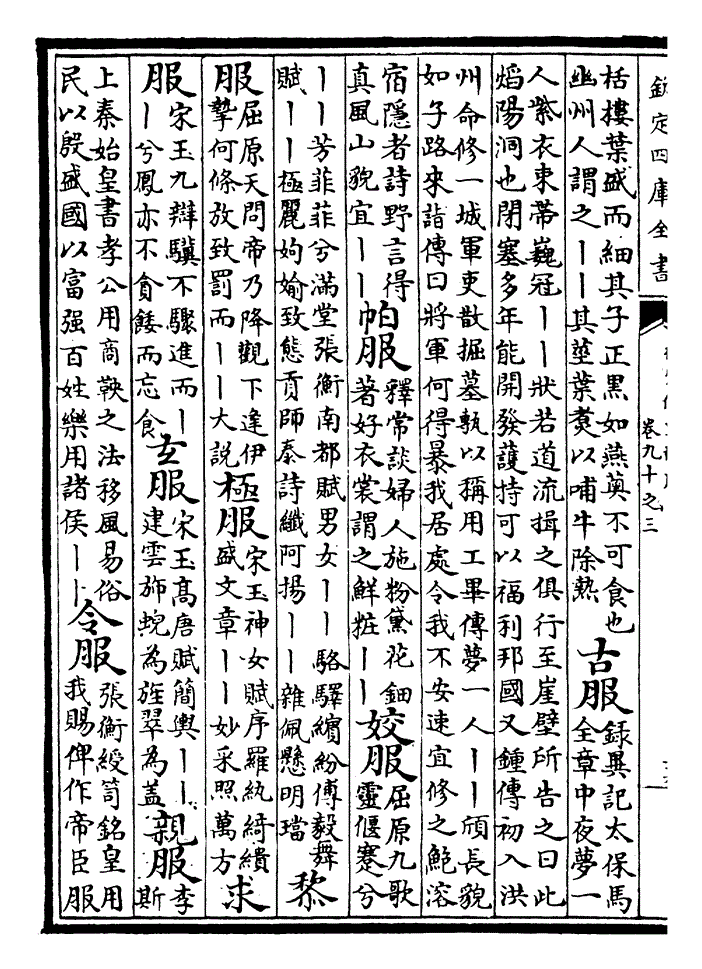 欽定四庫全書
卷九十之三
栝樓葉盛而細其子正黑如燕薁不可食也
幽州人謂之丨丨其莖葉煑以哺牛除熱
古服
錄異記太保馬
全章中夜夢一
人紫衣束帶巍冠丨丨狀若道流揖之俱行至崖壁所告之曰此
熖陽洞也閉塞多年能開發護持可以福利邦國又鍾傳初入洪
州命修一城軍吏散掘墓孰以稱用工畢傳夢一人丨丨頎長貌
如子路來詣傳曰將軍何得暴我居處令我不安速宜修之鮑溶
宿隱者詩野言得
真風山貌宜丨丨
帕服
釋常談婦人施粉黛花鈿
著好衣裳謂之鮮粧丨丨
姣服
屈原九歌
靈偃蹇兮
丨丨芳菲菲兮滿堂張衡南都賦男女丨丨駱驛繽紛傅毅舞
賦丨丨極麗姁媮致態貢師泰詩纖阿揚丨丨雜佩懸明璫
黎
服
屈原天問帝乃降觀下逢伊
摯何條放致罰而丨丨大說
極服
宋玉神女賦序羅紈綺繢
盛文章丨丨妙采照萬方
求
服
宋玉九辯驥不驟進而丨
丨兮鳳亦不貪餧而忘食
玄服
宋玉高唐賦簡輿丨丨
建雲斾蜺為旌翠為蓋
親服
李
斯
上秦始皇書孝公用商鞅之法移風易俗
民以殷盛國以富强百姓樂用諸侯丨丨
令服
張衡綬笥銘皇用
我賜俾作帝臣服